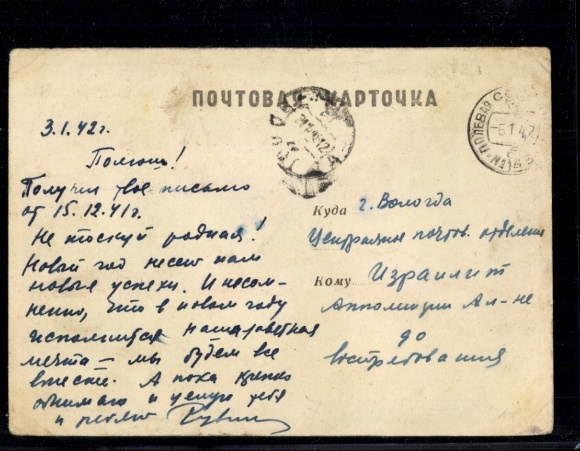 ПОЧТОВАЯ КАРТОЧКА
3.1.42г.
Получил твое письмо
от 15.12.41г.
Не тоскуй родная!
Новый год несет нам
новые успехи. И несом-
ненно, что в новом году
исполнится наша заветная
мечта – мы будем все
вместе. А пока крепко
обнимаю и целую тебя
и ребят
Куда г. Вологда
Центральное почтов. отделение
Кому Израилит
Ал-не
до
востребования
ПОЛЕВАЯ
5 1 42